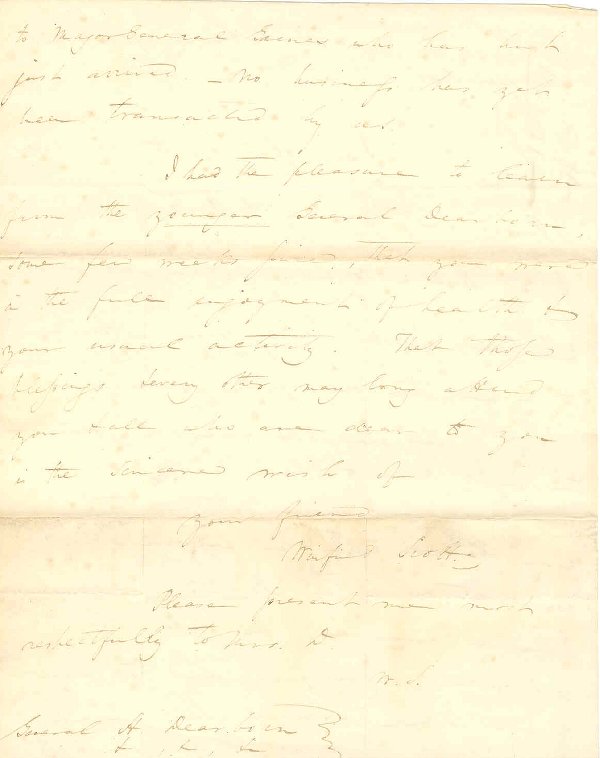 to Major General Gaines who has but
just arrived. — No business has yet
been transacted by us.
I had the pleasure to learn
from the younger General Dearborn,
some few weeks since, that you were
in the full enjoyment of health &
your usual activity. That those
blessings & every other may long attend
you & all who are dear to you
is the sincere wish of
your friend
Winfield Scott
Please present me most
respectfully to Mrs. D.
W.S.
General H. Dearborn
&, &, &